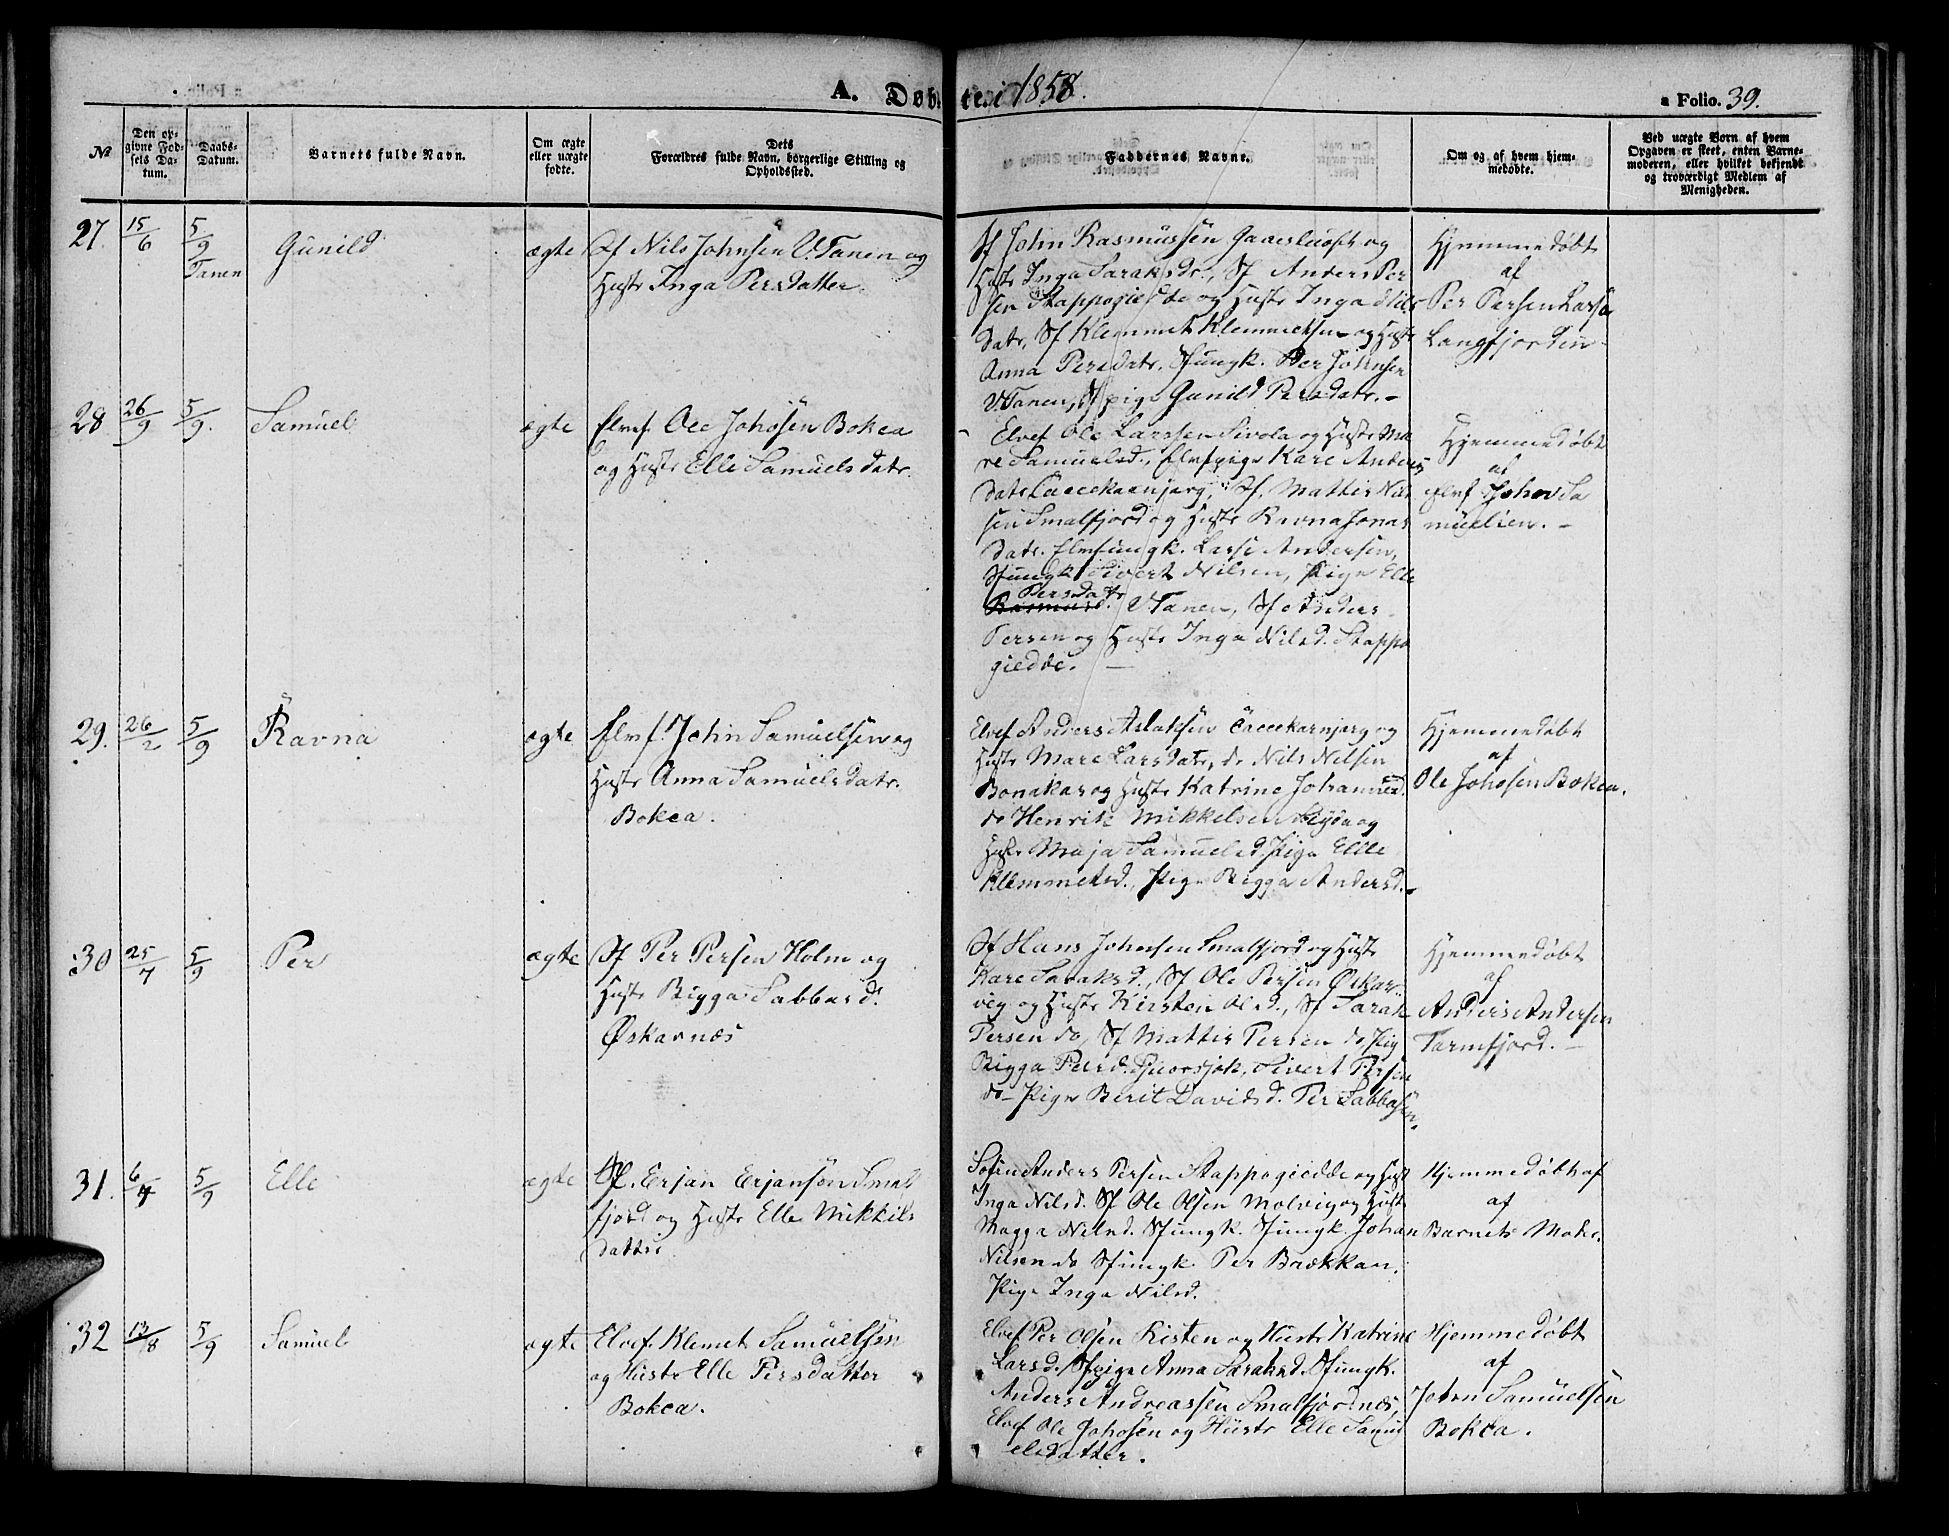 A. Døbte i 1858.
a Folio. 39.
№
Den opgivne Fødsels Datum.
Daabs-Datum.
Barnets fulde Navn.
Om ægte eller uægte fødte.
Dets Forældres fulde Navn, borgerlige Stilling og Opholdssted.
Faddernes Navne.
Om og af hvem hjemmedøbte.
Ved uægte Børn af hvem Opgaven er skeet, enten Barnemoderen, eller hvilket bekjendt og troværdigt Medlem af Menigheden.
27. 15/6 5/9 Tanen
Gunild
ægte
Sf Nils Johnsen V. Tanen og
Hustr Inga Persdatter.
Sf John Rasmussen og
Hustr Inga Saraksdr., Sf Anders Per
sen Stappogiedde og Hustr Inga Nils
datr, Sf Klemmet Klemmetsen og Hustr
Anna Persdatr. Sfungk. Per Johnsen
V. Tanen, Sfpige Gunild Persdatr. -
Hjemmedøbt
af
Per Persen Larse
Langfjorden
28 26/9 5/9.
Samuel
ægte
Elvef. Ole Johnsen Bokca
og Hustr Elle Samuelsdatr.
Elvef Ole Larssen Sivola og Hustr Ma
re Samuelsd., Elvefpige Kare Anders
datr, Sf. Mattis Nil
sen Smalfjord og Hustr Ravna Jonas
datr. Elvefungk. Larse Andersen,
Sfungk Sivert Nilsen, Pige Elle
Persdatr
V. Tanen, Sf Anders
Persen og Hustr Inga Nilsd. Stappo
giedde. —
Hjemmedøbt
af
Elvf John Sa
muelsen. -
29. 26/2 5/9
Ravna
ægte
Elvf. John Samuelsen og
Hustr Anna Samuelsdatr.
Bokca.
Elvef Anders Aslaksen og
Hustr Mare Larsdatr, do Nils Nilsen
Bonakas og Hustr Katrine Johannesd.
do Henrik Mikkelsen og
Hustr Maja Samuelsd, Pige Elle
Klemmetsd., Pige Bigga Andersd. -
Hjemmedøbt
af
Ole Johnsen Bokca.
30 25/7 5/9
Per
ægte
Sf Per Persen Holm og
Hustr Bigga Sabbasd.
Øskarnæs
Sf Hans Johnsen Smalfjord og Hustr
Kare Saraksd., Sf Ole Persen Øskar
vig og Hustr Kirsten Olsd., Sf Sarak
Persen do, Sf Mattis Persen do, Pige
Bigga Persd., Sivert Persen
do - Pige Berit Davidsd. Per Sabbasen.
Hjemmedøbt
af
Anders Andersen
Tarmfjord. -
31. 6/4 5/9
Elle
ægte
Sf. Erjan Erjansøn Smal
fjord og Hustr Elle Mikkels
datter
Anders Persen Stappogiedde og Hust
Inga Nilsd. Sf Ole Olsen Molvig og Hustr
Magga Nilsd. Sfungk. Sfungk. Johan
Nilsen do Sfungk. Per Brækkan,
Pige Inga Nilsd.
Hjemmedøbt af
af
Barnets Moder.
32 13/8 5/9
Samuel
ægte
Elvef. Klemet Samuelsen
og Hustr Elle Persdatter
Bokca.
Elvef Per Olsen Kisten og Hustr Katrine
Larsd. Sfpige Anna Saraksd. Sfungk.
Anders Andreassen Smalfjordnæs
Elvef Ole Johnsen og Hustr Elle Samu
elsdatter.
Hjemmedøbt
af
John Samuelsen
Bokca.